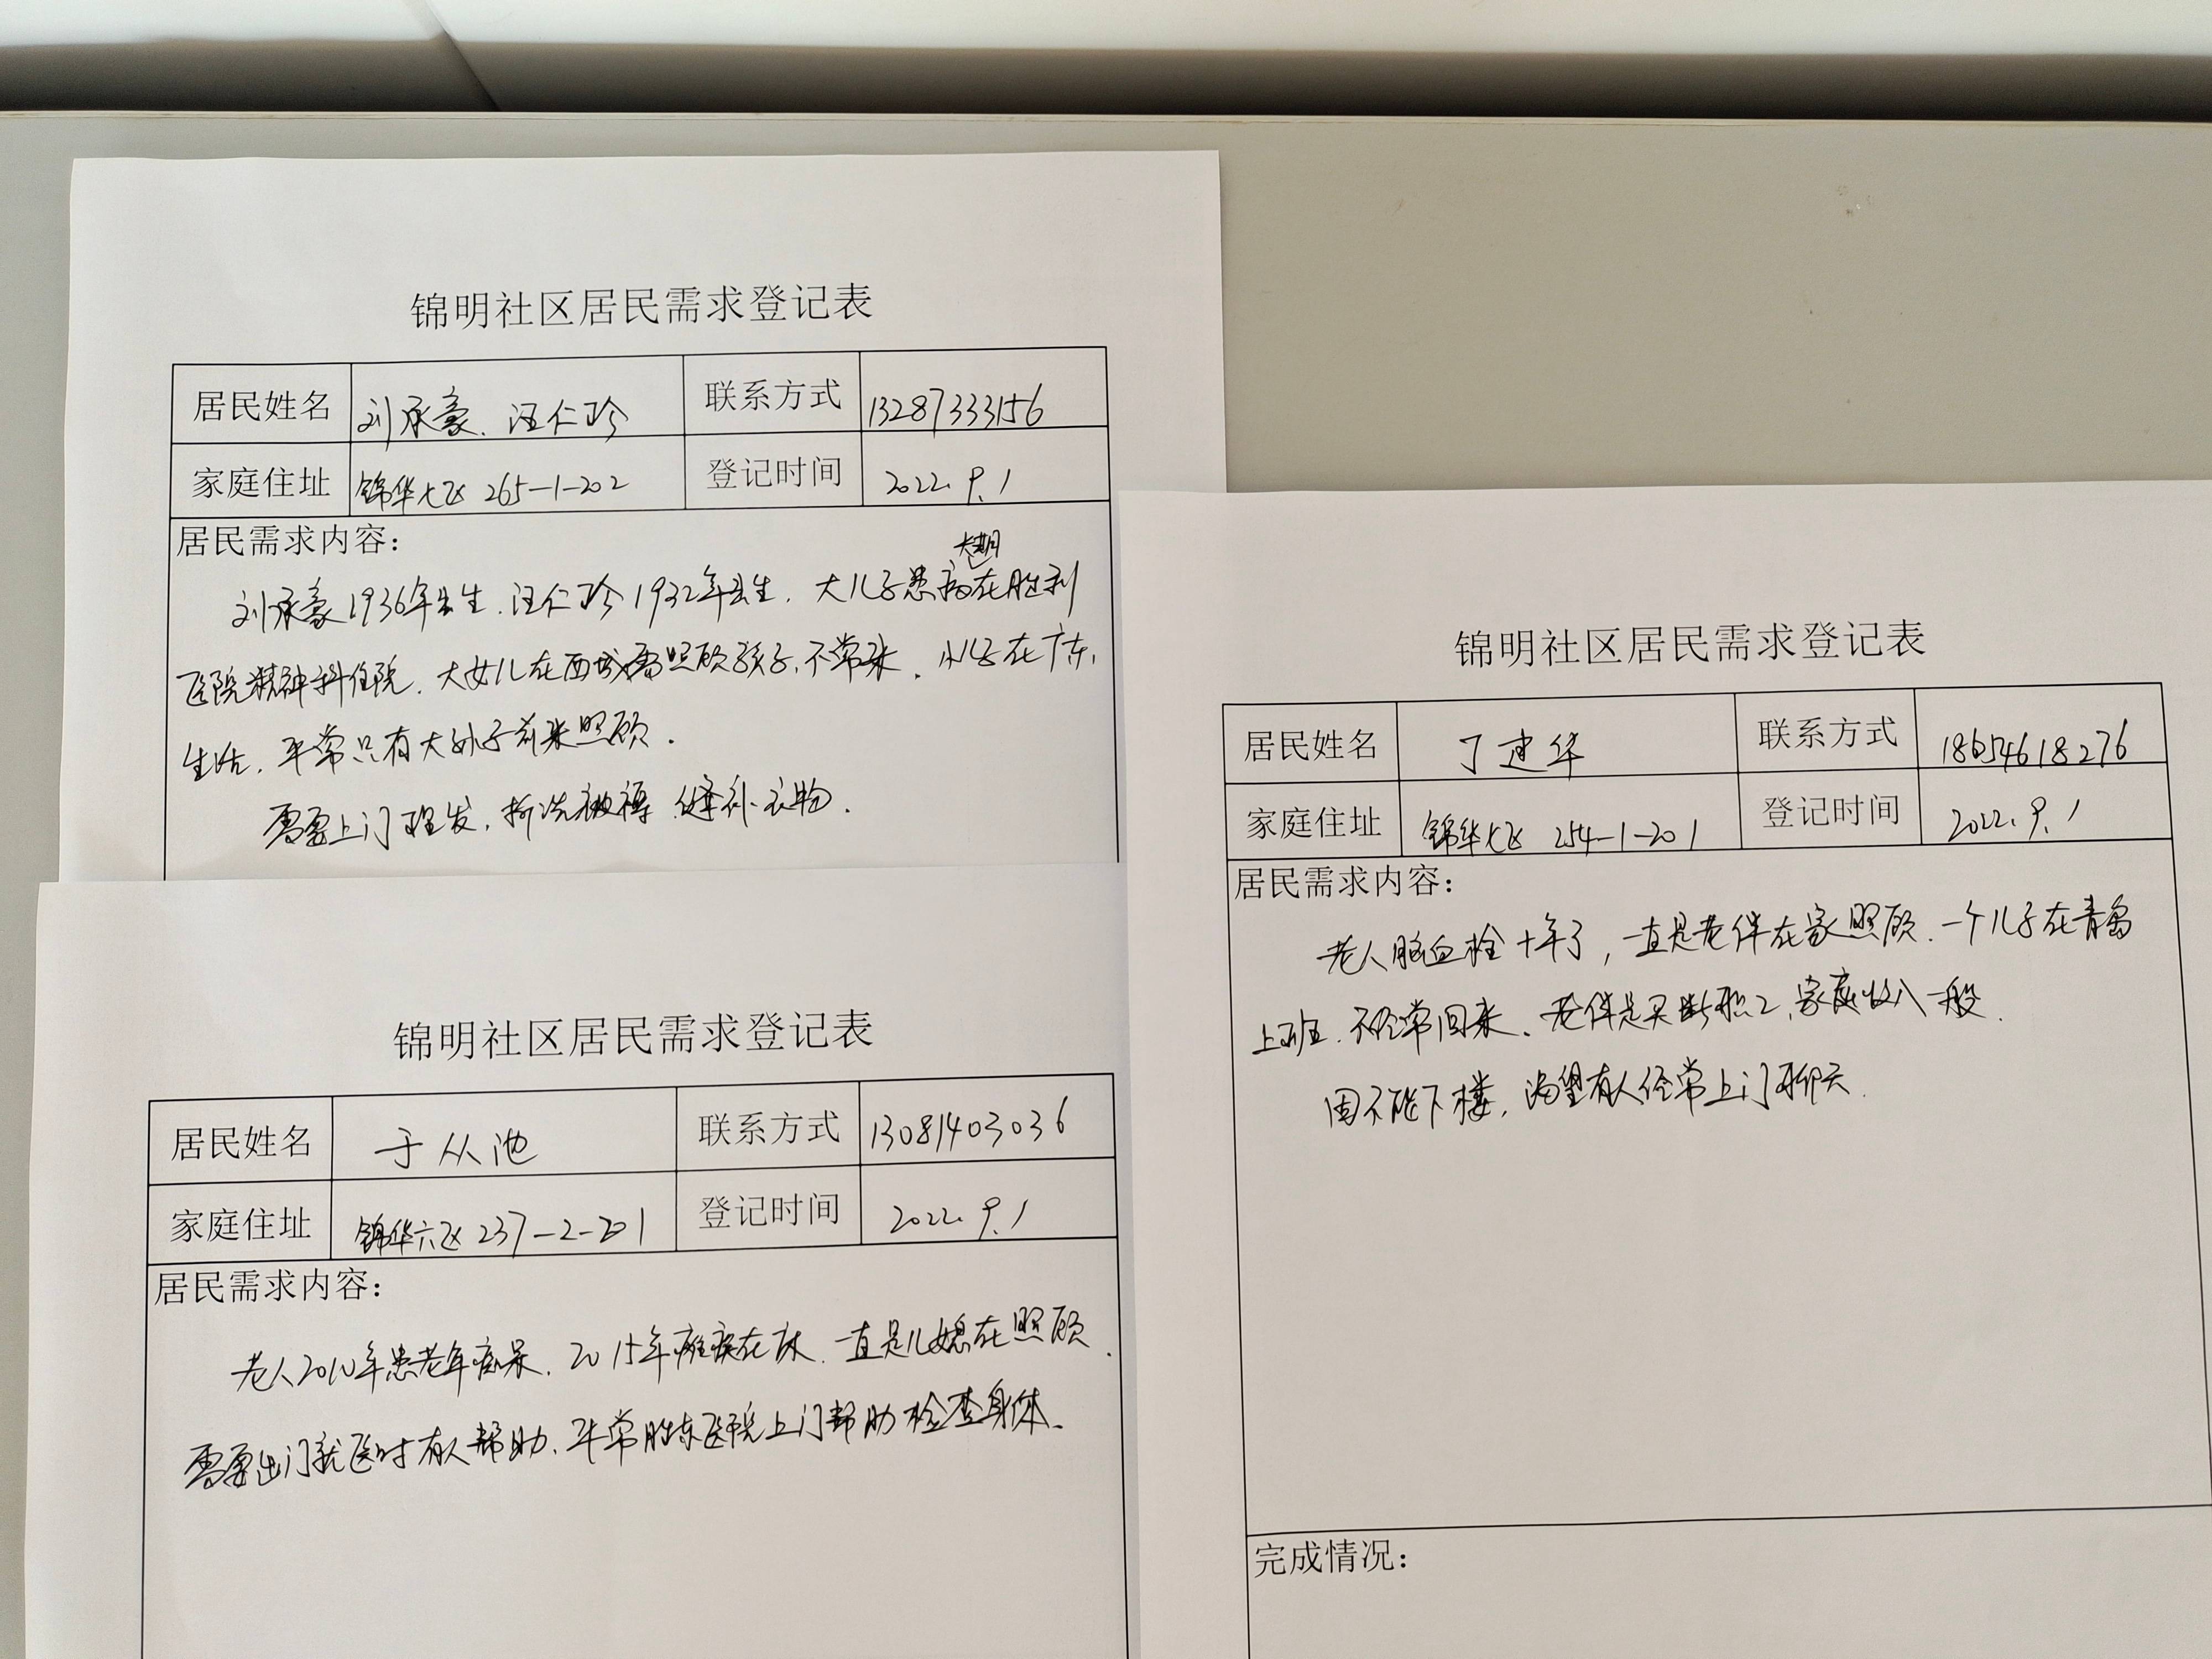 锦明社区居民需求登记表
居民姓名 刘承豪、汪仁珍 联系方式 13287333156
家庭住址 锦华七区 265-1-202 登记时间 2022.9.1
居民需求内容：
长期
刘承豪1936年出生.汪仁珍1932年出生.大儿子患病在胜利
医院精神科住院.大女儿在西城需照顾孩子,不常来.小儿子在广东,
生活.平常只有大孙子前来照顾.
需要上门理发,拆洗被褥.缝补衣物.
锦明社区居民需求登记表
居民姓名 于从池 联系方式 13081403036
家庭住址 锦华六区 237-2-201 登记时间 2022.9.1
居民需求内容：
老人2010年患老年痴呆.2015年瘫痪在床.一直是儿媳在照顾.
需要出门就医时有人帮助.平常胜东医院上门帮助检查身体.
锦明社区居民需求登记表
居民姓名 丁建华 联系方式 18654618276
家庭住址 锦华七区 254-1-201 登记时间 2022.9.1
居民需求内容：
老人脑血栓十年了,一直是老伴在家照顾.一个儿子在青岛
上班.不经常回来、老伴是买断职工,家庭收入一般.
因不能下楼,渴望有人经常上门聊天.
完成情况：